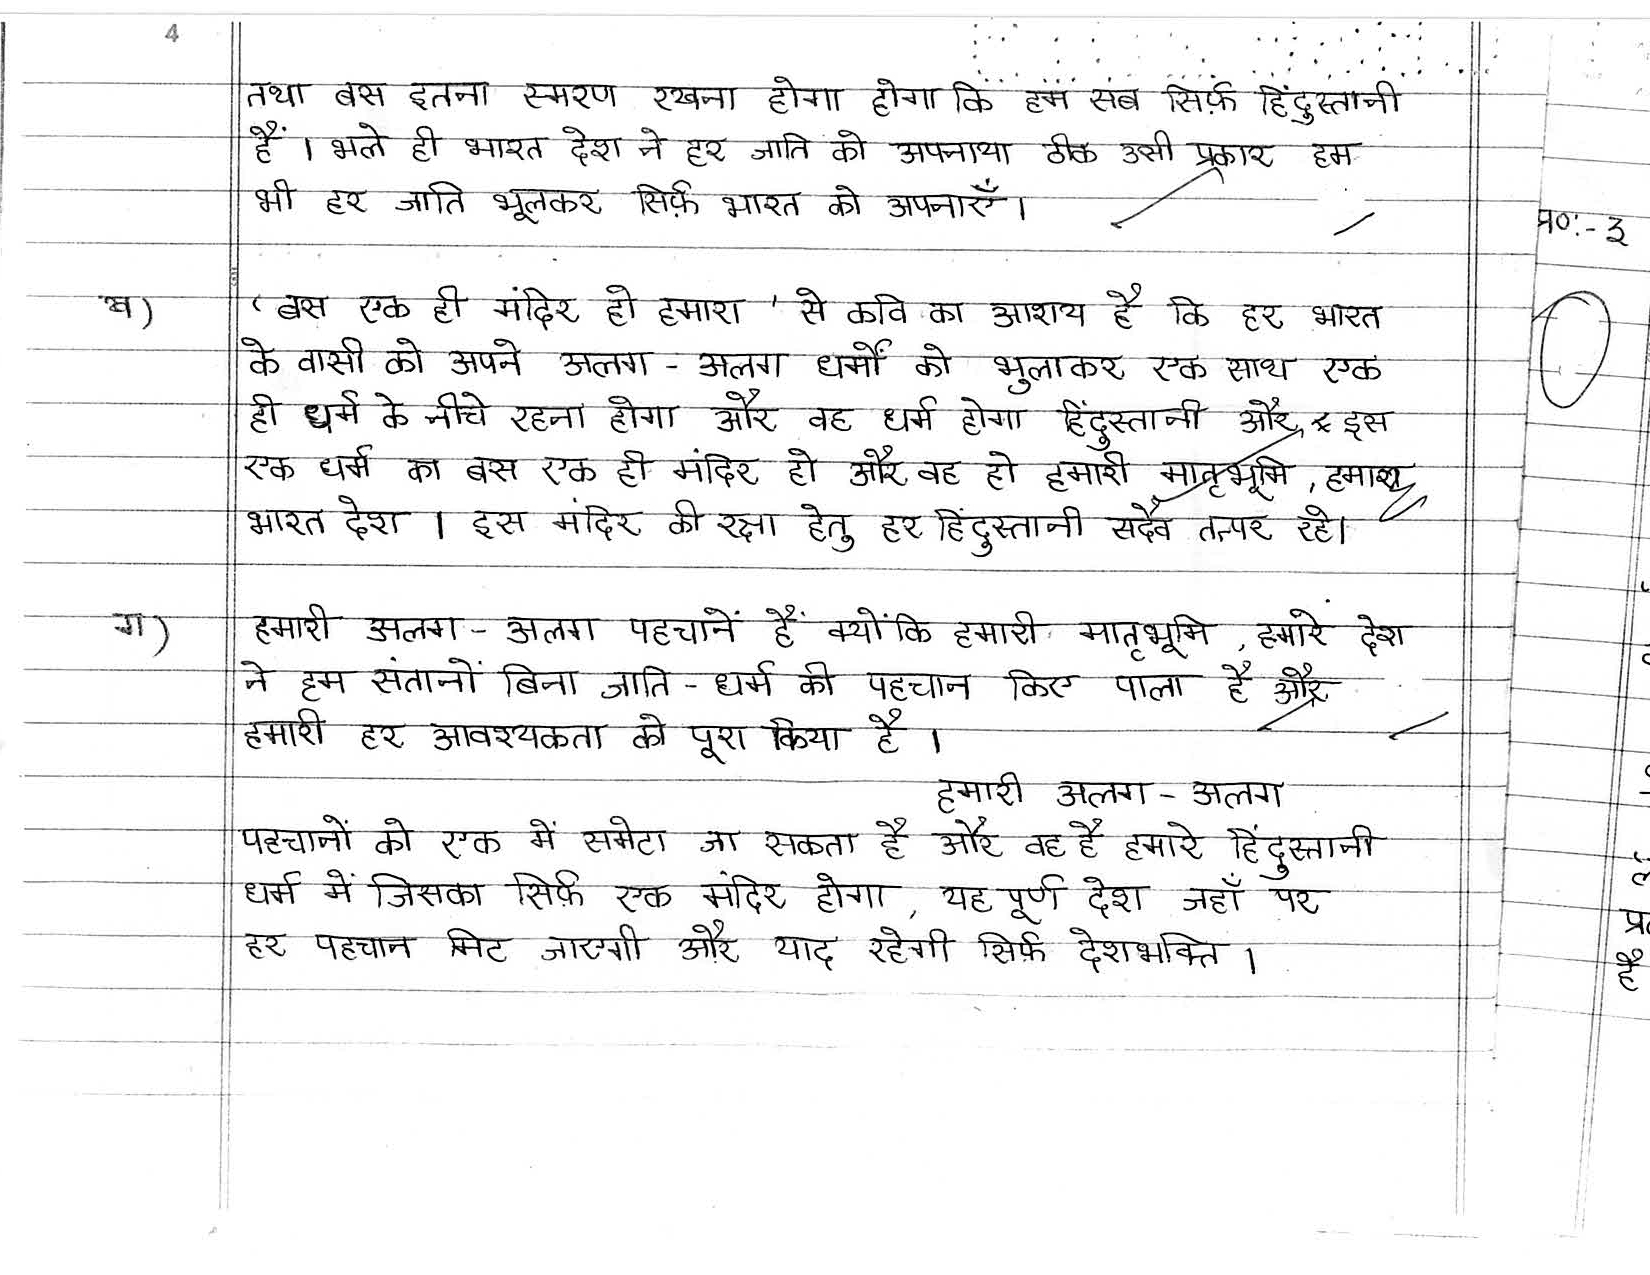 4
तथा बस इतना स्मरण रखना होगा होगा कि हम सब सिर्फ़ हिंदुस्तानी
हैं । भले ही भारत देश ने हर जाति को अपनाया ठीक उसी प्रकार हम
भी हर जाति भूलकर सिर्फ़ भारत को अपनाएँ ।
ख) ‘ बस एक ही मंदिर हो हमारा ’ से कवि का आशय है कि हर भारत
के वासी को अपने अलग - अलग धर्मों को भुलाकर एक साथ एक
ही धर्म के नीचे रहना होगा और वह धर्म होगा हिंदुस्तानी और इस
एक धर्म का बस एक ही मंदिर हो और वह हो हमारी मातृभूमि , हमारा
भारत देश । इस मंदिर की रक्षा हेतु हर हिंदुस्तानी सदैव तत्पर रहे।
ग) हमारी अलग - अलग पहचानें हैं क्योंकि हमारी मातृभूमि , हमारे देश
ने हम संतानों बिना जाति - धर्म की पहचान किए पाला है और
हमारी हर आवश्यकता को पूरा किया है ।
हमारी अलग - अलग
पहचानों को एक में समेटा जा सकता है और वह है हमारे हिंदुस्तानी
धर्म में जिसका सिर्फ़ एक मंदिर होगा , यह पूर्ण देश जहाँ पर
हर पहचान मिट जाएगी और याद रहेगी सिर्फ़ देशभक्ति ।
प्र०:- 3
है